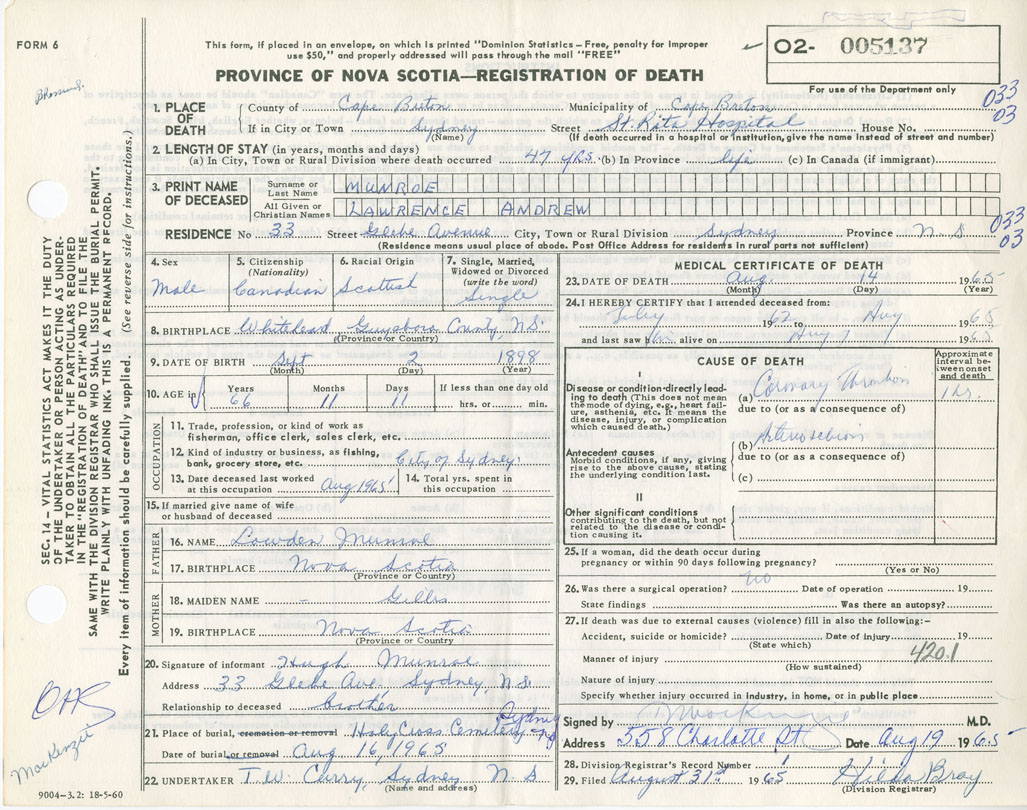 FORM 6
This form, if placed in an envelope, on which is printed "Dominion Statistics – Free, penalty for improper
use $50," and properly addressed will pass through the mail "FREE"
PROVINCE OF NOVA SCOTIA—REGISTRATION OF DEATH
02- 005137
For use of the Department only
033
03
1. PLACE OF DEATH
County of Cape Breton Municipality of Cape Breton
If in City or Town Sydney Street St. Rita Hospital House No.
(Name) (If death occurred in a hospital or institution, give the name instead of street and number)
2. LENGTH OF STAY (in years, months and days)
(a) In City, Town or Rural Division where death occurred 47 yrs. (b) In Province life (c) In Canada (if immigrant)
3. PRINT NAME OF DECEASED
Surname or Last Name MUNROE
All Given or Christian Names LAWRENCE ANDREW
RESIDENCE No 33 Street Glebe Avenue City, Town or Rural Division Sydney Province N S
(Residence means usual place of abode. Post Office Address for residents in rural parts not sufficient)
033
03
4. Sex
Male
5. Citizenship
(Nationality)
Canadian
6. Racial Origin
Scottish
7. Single, Married,
Widowed or Divorced
(write the word)
Single
8. BIRTHPLACE Whitehead Guysboro County, N.S.
(Province or Country)
9. DATE OF BIRTH Sept 2 1898
(Month) (Day) (Year)
10. AGE in
Years Months Days If less than one day old
66 11 11 hrs. or min.
OCCUPATION
11. Trade, profession, or kind of work as
fisherman, office clerk, sales clerk, etc.
12. Kind of industry or business, as fishing,
bank, grocery store, etc. City of Sydney
13. Date deceased last worked
at this occupation Aug 1965
14. Total yrs. spent in
this occupation
15. If married give name of wife
or husband of deceased
FATHER
16. NAME Lowden Munroe
17. BIRTHPLACE Nova Scotia
(Province or Country)
MOTHER
18. MAIDEN NAME – Gillis
19. BIRTHPLACE Nova Scotia
(Province or Country)
20. Signature of informant Hugh Munroe
Address 33 Glebe Ave. Sydney, N.S.
Relationship to deceased brother
21. Place of burial, cremation or removal Holy Cross Cemetery Sydney NS
Date of burial or removal Aug 16, 1965
22. UNDERTAKER T.W. Curry, Sydney N S
(Name and address)
MEDICAL CERTIFICATE OF DEATH
23. DATE OF DEATH Aug. 14 1965
(Month) (Day) (Year)
24. I HEREBY CERTIFY that I attended deceased from:
July 1962 to Aug 1965
and last saw him alive on Aug 7 1965
CAUSE OF DEATH
Approximate
interval be-
tween onset
and death
I
Disease or condition directly lead-
ing to death (This does not mean
the mode of dying, e.g., heart fail-
ure, asthenia, etc. It means the
disease, injury, or complication
which caused death.)
(a) Coronary Thrombosis 1 hr.
due to (or as a consequence of)
Antecedent causes
Morbid conditions, if any, giving
rise to the above cause, stating
the underlying condition last.
(b) Arteriosclerosis
due to (or as a consequence of)
(c)
II
Other significant conditions
contributing to the death, but not
related to the disease or condi-
tion causing it.
25. If a woman, did the death occur during
pregnancy or within 90 days following pregnancy?
(Yes or No)
26. Was there a surgical operation? no Date of operation 19
State findings Was there an autopsy?
27. If death was due to external causes (violence) fill in also the following:-
Accident, suicide or homicide? Date of injury 19
(State which)
Manner of injury 420.1
(How sustained)
Nature of injury
Specify whether injury occurred in industry, in home, or in public place
Signed by MacKenzie M.D.
Address 558 Charlotte St Date Aug 19 1965
28. Division Registrar's Record Number 1
29. Filed August 31st 1965 Hilda Bray
(Division Registrar)
SEC. 14 – VITAL STATISTICS ACT MAKES IT THE DUTY
OF THE UNDERTAKER OR PERSON ACTING AS UNDER-
TAKER TO OBTAIN ALL THE PARTICULARS REQUIRED
IN THE "REGISTRATION OF DEATH" AND TO FILE THE
SAME WITH THE DIVISION REGISTRAR WHO SHALL ISSUE THE BURIAL PERMIT.
WRITE PLAINLY WITH UNFADING INK. THIS IS A PERMANENT RECORD.
Every item of information should be carefully supplied. (See reverse side for instructions.)
MacKenzie
9004-3.2: 18-5-60